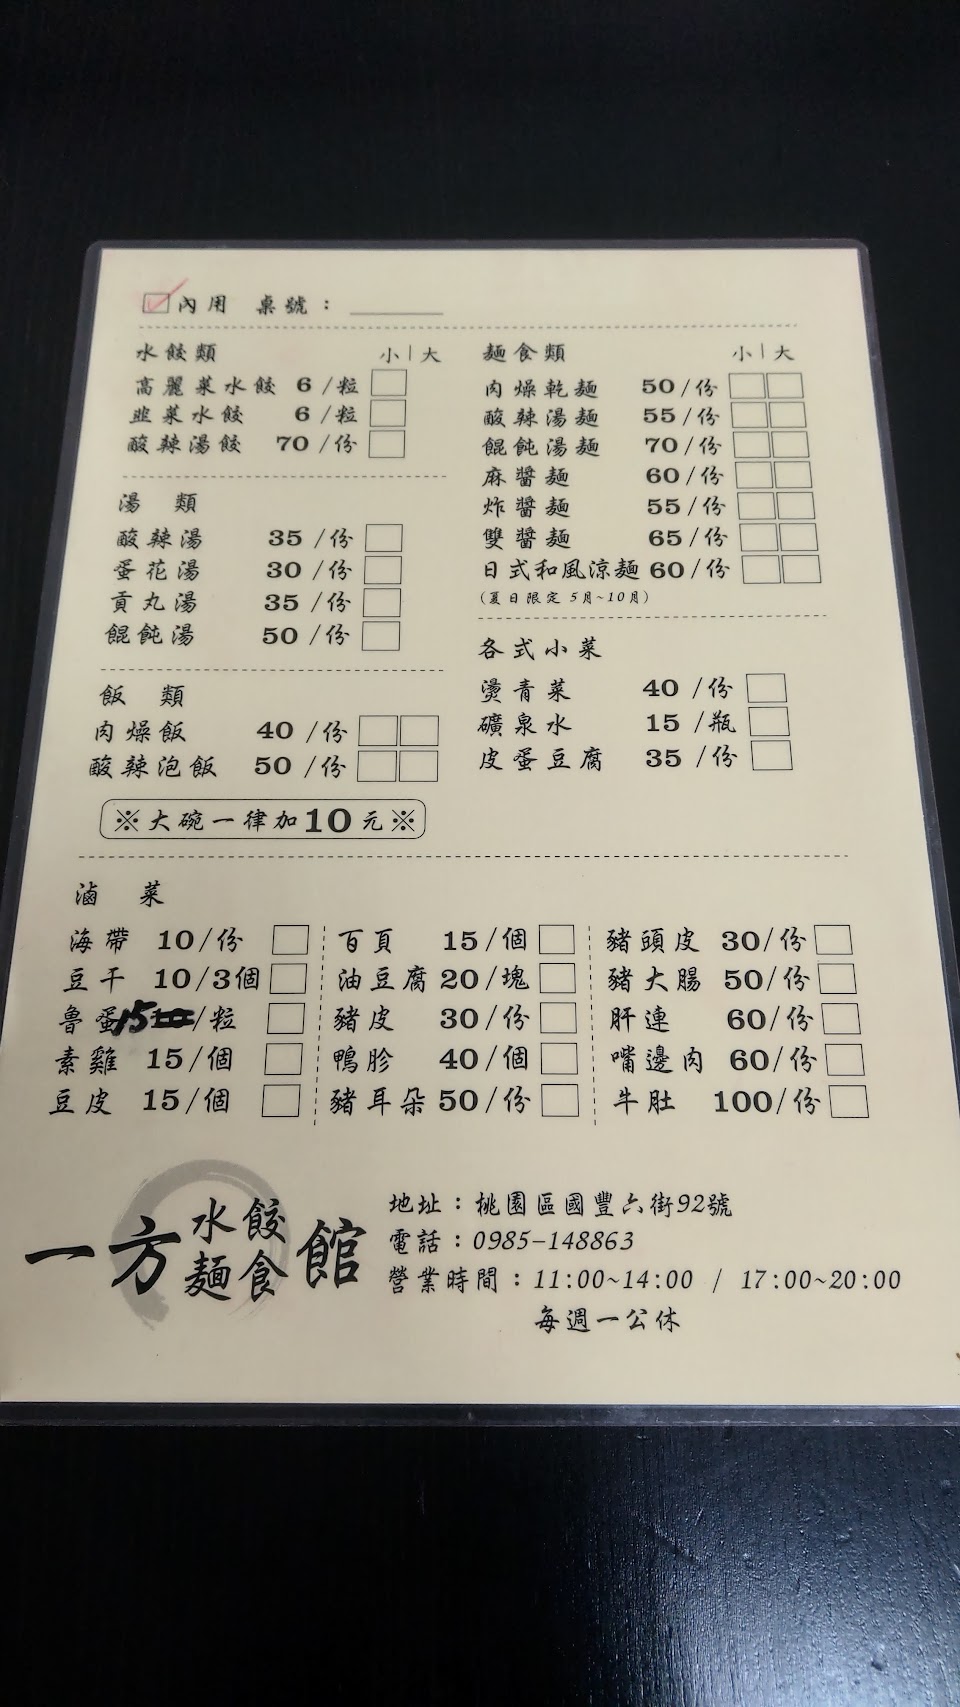 內用 桌號：
水餃類 小|大
高麗菜水餃 6/粒
韭菜水餃 6/粒
酸辣湯餃 70/份
湯 類
酸辣湯 35/份
蛋花湯 30/份
貢丸湯 35/份
餛飩湯 50/份
飯 類
肉燥飯 40/份
酸辣泡飯 50/份
※大碗一律加10元※
麵食類 小|大
肉燥乾麵 50/份
酸辣湯麵 55/份
餛飩湯麵 70/份
麻醬麵 60/份
炸醬麵 55/份
雙醬麵 65/份
日式和風涼麵 60/份
(夏日限定 5月~10月)
各式小菜
燙青菜 40/份
礦泉水 15/瓶
皮蛋豆腐 35/份
滷 菜
海帶 10/份
豆干 10/3個
魯蛋 15 10/粒
素雞 15/個
豆皮 15/個
百頁 15/個
油豆腐 20/塊
豬皮 30/份
鴨胗 40/個
豬耳朵 50/份
豬頭皮 30/份
豬大腸 50/份
肝連 60/份
嘴邊肉 60/份
牛肚 100/份
一方水餃麵食館
地址：桃園區國豐六街92號
電話：0985-148863
營業時間：11:00~14:00 / 17:00~20:00
每週一公休